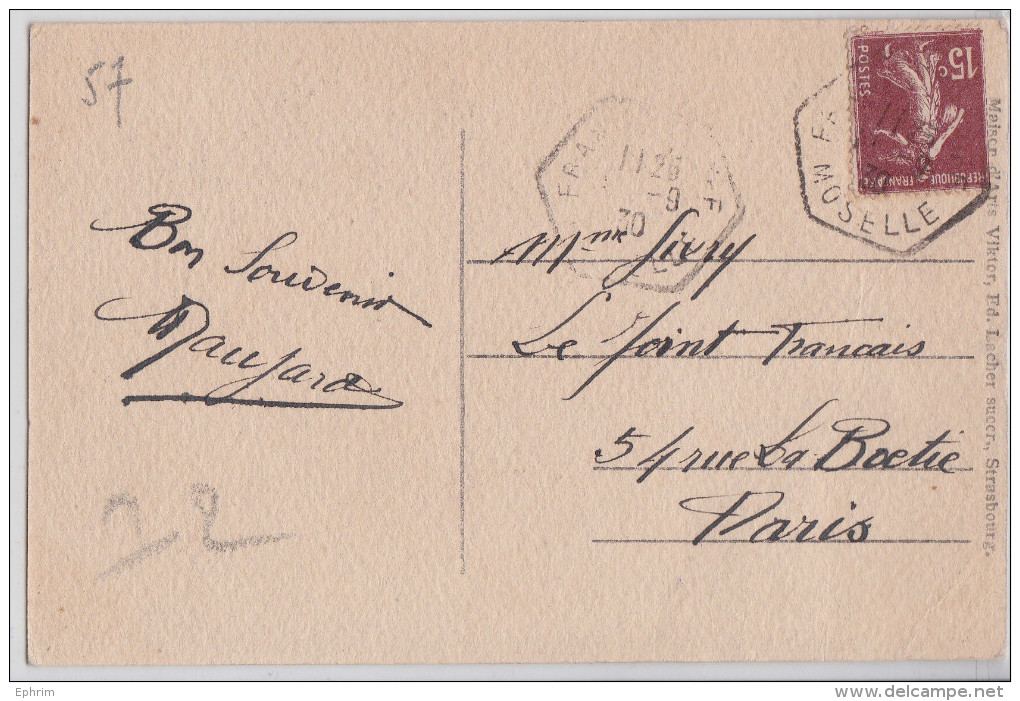 57
Bon Souvenir
Maujard
22
FRA
11 26
-9
30
15c
POSTES
REPUBLIQUE FRANÇAISE
MOSELLE
Mme Livry
Le Joint Francais
54 rue La Boetie
Paris
Maison d'Arts Viktor, Ed. Lecher succr., Strasbourg.
Ephrim
www.delcampe.net